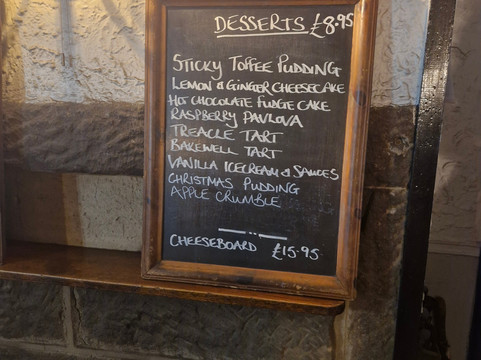 DESSERTS £8.95
STICKY TOFFEE PUDDING
LEMON & GINGER CHEESECAKE
HOT CHOCOLATE FUDGE CAKE
RASPBERRY PAVLOVA
TREACLE TART
BAKEWELL TART
VANILLA ICECREAM & SAUCES
CHRISTMAS PUDDING
APPLE CRUMBLE
CHEESEBOARD £15.95